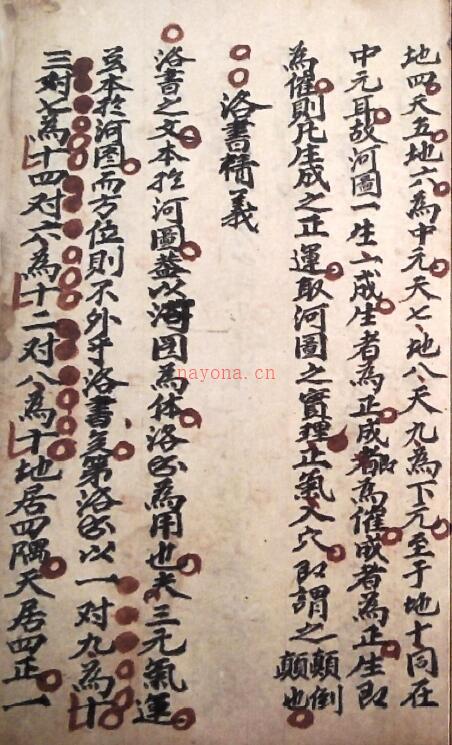 地四天五地六為中元天七地八天九為下元至于地十同在
中元耳故河圖一生六成生者為正成者即為催成者為正生即
為催則凡生成之正運取河圖之實理正氣入穴即謂之顛倒顛也
洛書精義
洛書之文本於河圖蓋以河图為体洛书為用也夫三元氣運
本於河图而方位則不外乎洛書矣第洛书以一对九為十
三对七為十四对六為十二对八為十地居四隅天居四正一
nayona.cn